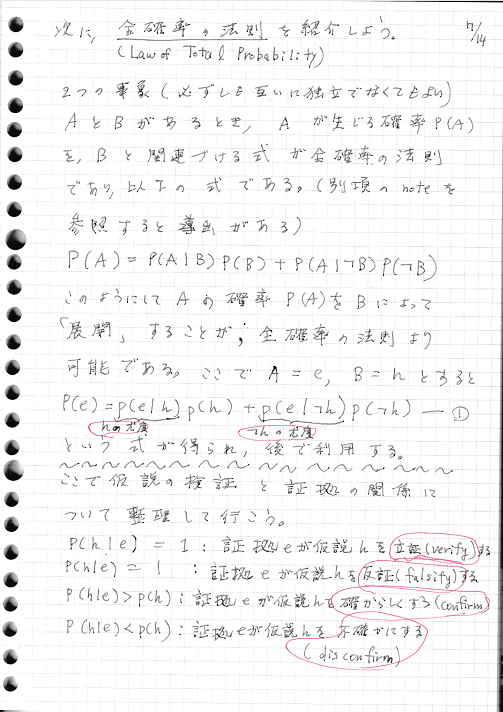 7/14
次に, 全確率の法則を紹介しよう。
(Law of Total Probability)
2つの事象(必ずしも互いに独立でなくてもよい)
AとBがあるとき, Aが生じる確率P(A)
を, Bと関連づける式が全確率の法則
であり, 以下の式である。(別項のnoteを
参照すると導出がある)
P(A) = P(A|B)P(B) + P(A|¬B)P(¬B)
このようにしてAの確率P(A)をBによって
「展開」することが, 全確率の法則より
可能である。ここでA=e, B=hとすると
P(e)=p(e|h)p(h)+p(e|¬h)p(¬h) — ①
hの尤度 ¬hの尤度
という式が得られ, 後で利用する。
ここで仮説の検証と証拠の関係に
ついて整理して行こう。
P(h|e) = 1 : 証拠eが仮説hを立証(verify)する
P(h|e) = 1 : 証拠eが仮説hを反証(falsify)する
P(h|e)>p(h) : 証拠eが仮説hを確からしくする(confirm)
P(h|e)<p(h) : 証拠eが仮説hを不確かにする
(disconfirm)